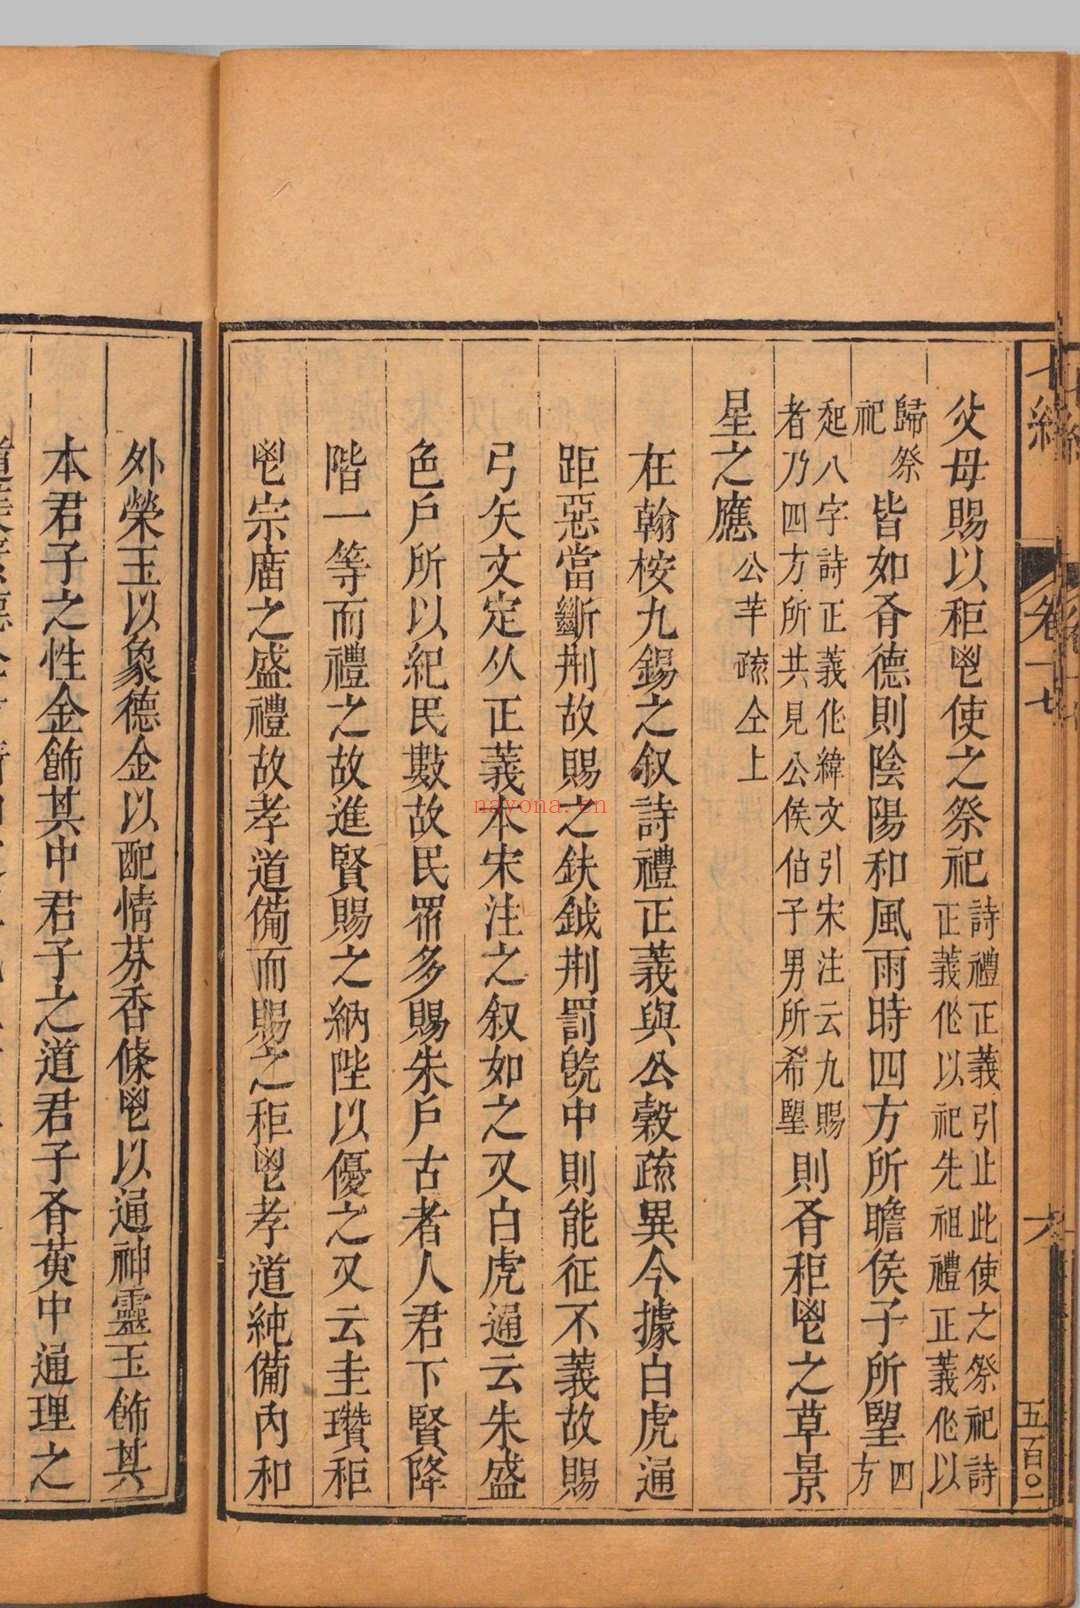 七緯
卷十七
六
五百〇一
父母賜以秬鬯使之祭祀詩禮正義引止此使之祭祀詩正義作以祀先祖禮正義作以
歸祭祀皆如有德則陰陽和風雨時四方所瞻侯子所望四方
起八字詩正義作緯文引宋注云九賜者乃四方所共見公侯伯子男所希望則有秬鬯之草景
星之應公羊疏仝上
在翰桉九錫之叙詩禮正義與公穀疏異今據白虎通
距惡當斷荆故賜之鈇鉞荆罰旣中則能征不義故賜
弓矢文定从正義本宋注之叙如之又白虎通云朱盛
色戶所以紀民數故民眾多賜朱戶古者人君下賢降
階一等而禮之故進賢賜之納陛以優之又云圭瓚秬
鬯宗廟之盛禮故孝道備而賜之秬鬯孝道純備內和
外榮玉以象德金以配情芬香條鬯以通神靈玉飾其
本君子之性金飾其中君子之道君子有黃中通理之
nayona.vn